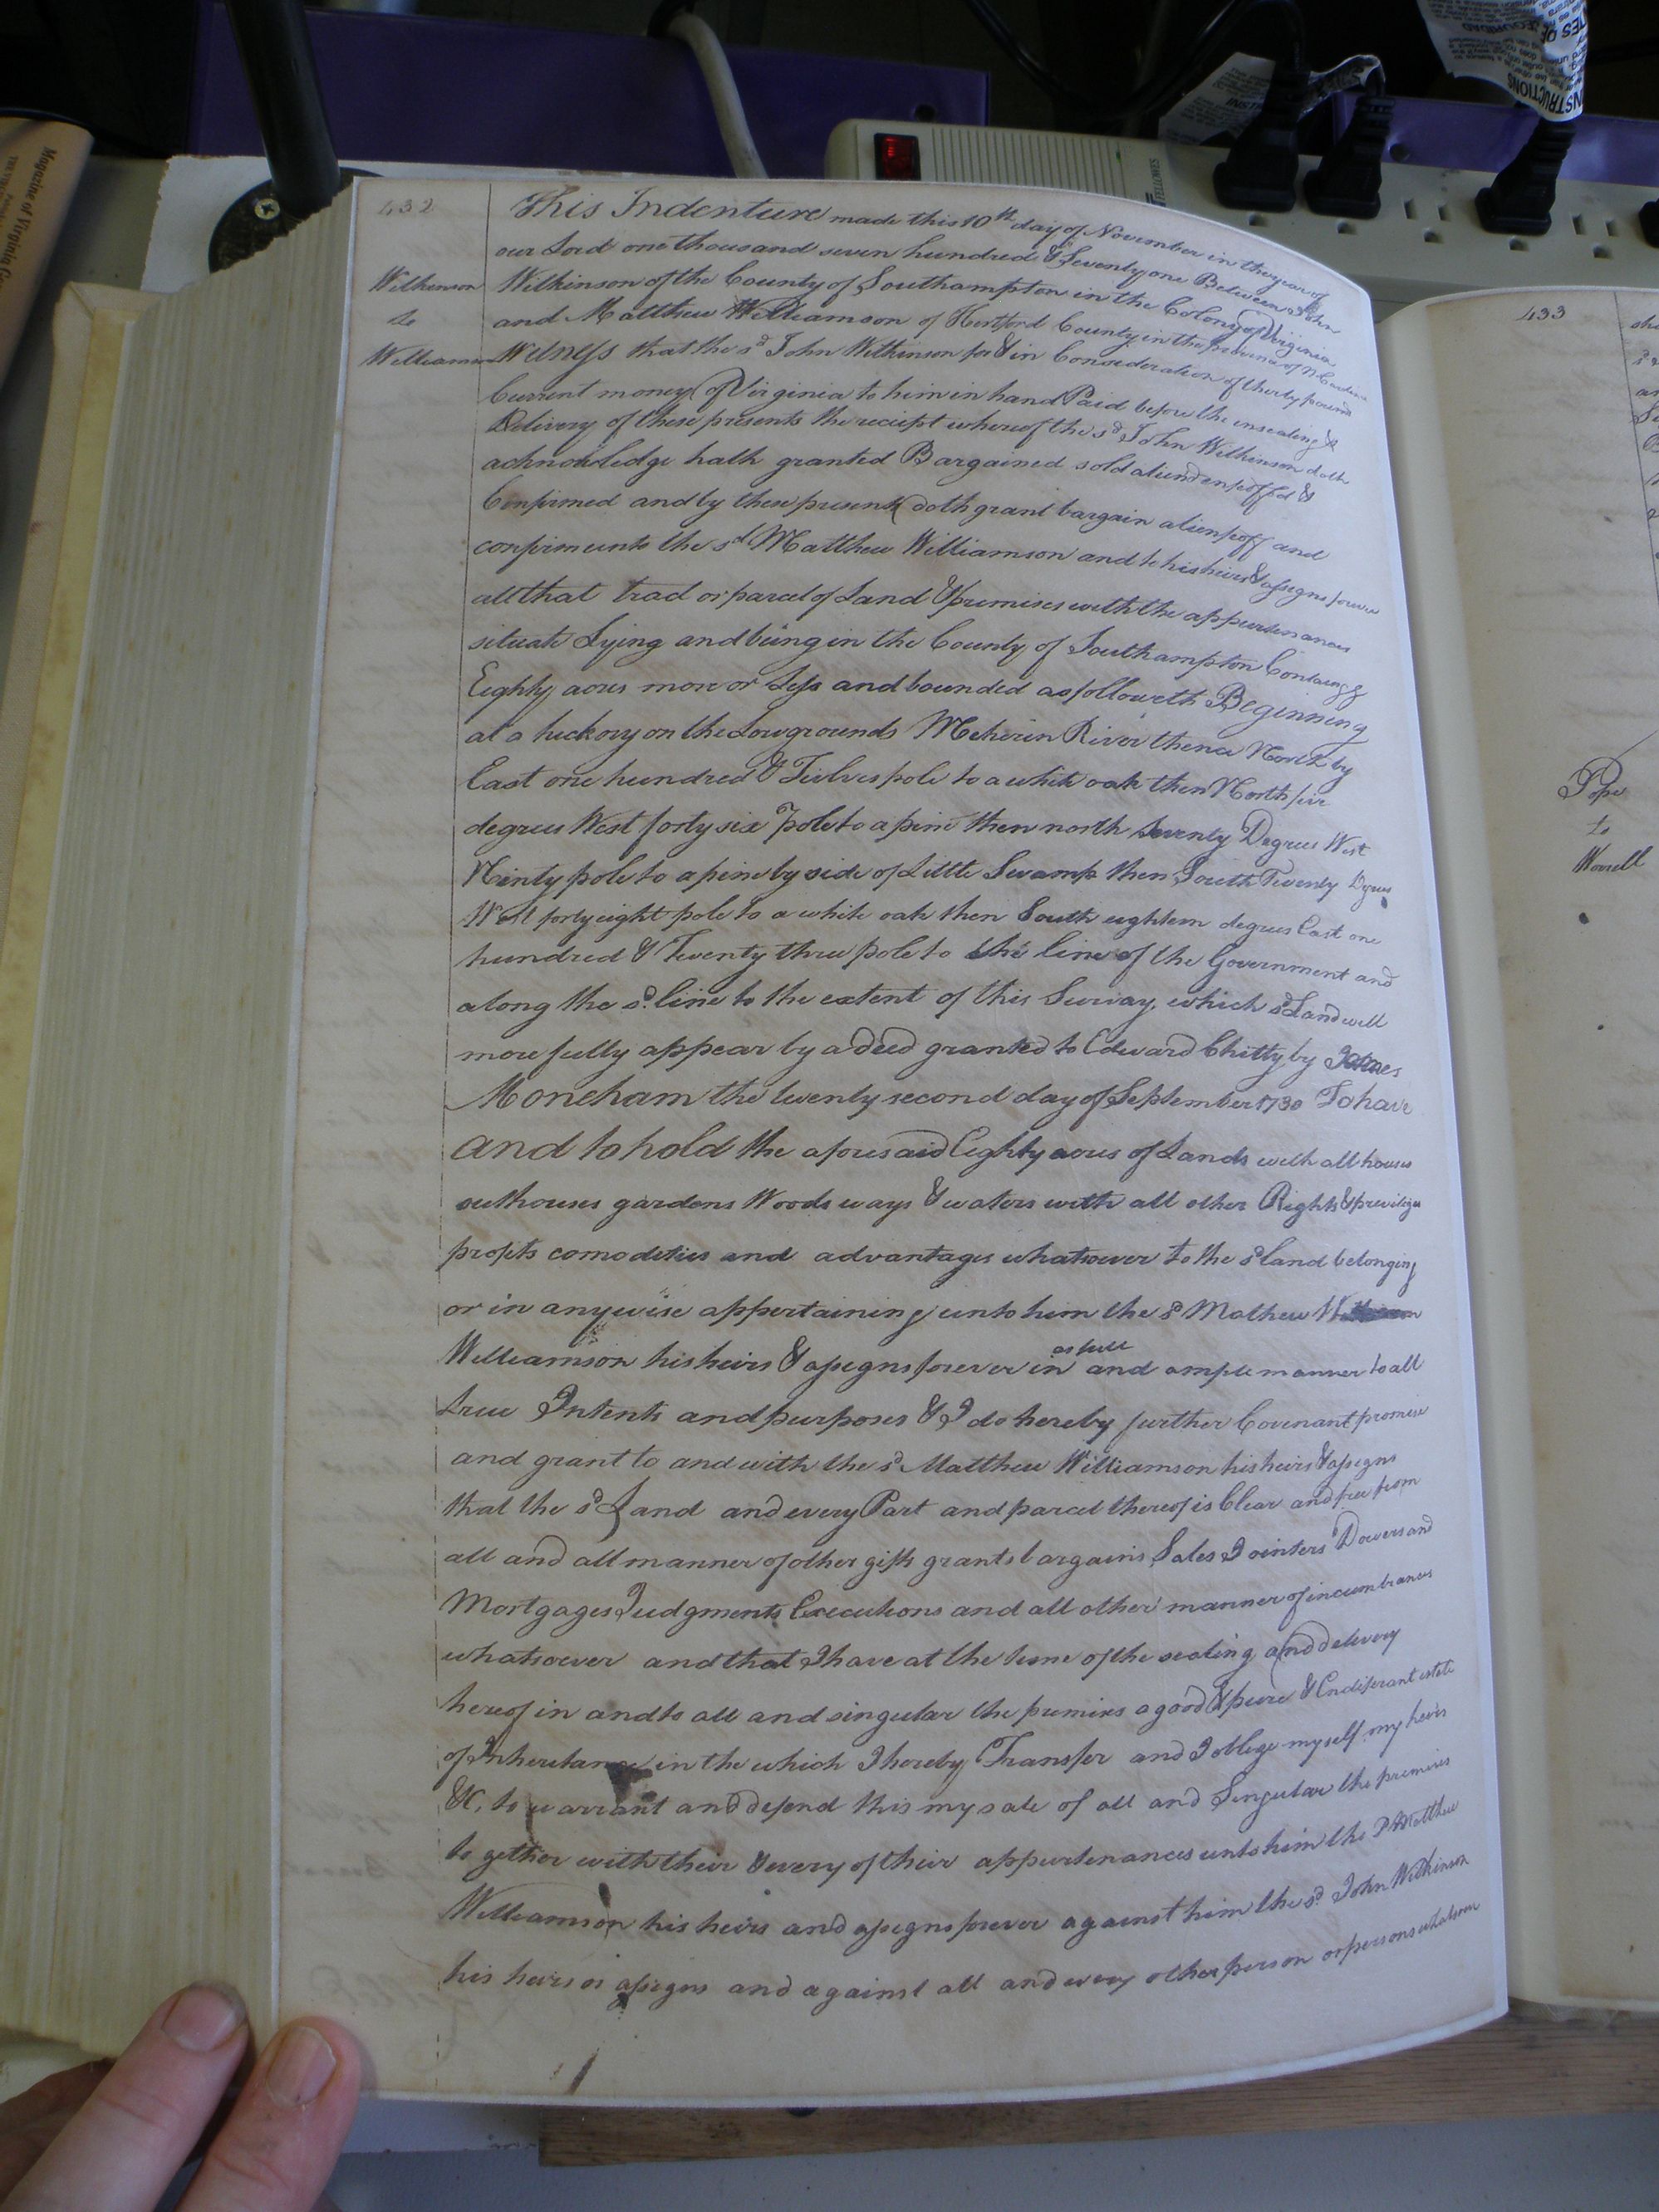 432
This Indenture made this 10th day of November in the year of
our Lord one thousand seven hundred & Seventy one Between John
Wilkinson
Wilkinson of the County of Southampton in the Colony of Virginia
to
and Matthew Williamson of Hertford County in the province of N Carolina
Williamson
Witness that the sd John Wilkinson for & in Consideration of thirty pound
Current money of Virginia to him in hand Paid before the ensealing &
Delivery of these presents the reciept whereof the sd John Wilkinson doth
acknowledge hath granted Bargained sold aliend enfeoffed &
Confirmed and by these presents doth grant bargain alien feoff and
confirm unto the sd Matthew Williamson and to his heirs & assigns forever
all that tract or parcel of Land & premises with the appurtenances
situate Lying and being in the County of Southampton Containg
Eighty acres more or Less and bounded as followeth Beginning
at a hickory on the Lowgrounds Meherin River thence North by
East one hundred & Twelve pole to a white oak then North
degrees West forty six pole to a pine then north seventy Degrees West
Ninty pole to a pine by side of Little Swamp then South Twenty Degrees
West forty eight pole to a white oak then South eightem degrees East one
hundred & Twenty three pole to the line of the Government and
along the sd. line to the extent of this Survay, which sd Land will
more fully appear by a deed granted to Edward Chitty by James
Moneham the twenty second day of September 1730 To have
and to hold the aforesaid Eighty acres of Lands with all houses
outhouses gardens Woods ways & waters with all other Rights & previliges
profits comodities and advantages whatsoever to the sd land belonging
or in anywise appertaining unto him the sd Mathew
as full
Williamson his heirs & assegns forever in and ample manner to all
true Intents and purposes & I do hereby further Covenant promise
and grant to and with the sd. Matthew Williamson his heirs & assegns
that the sd Land and every Part and parcel thereof is Clear and free from
all and all manner of other gifts grants bargains Sales Jointers Dowers and
Mortgages Judgments Executions and all other manner of incumbrances
whatsoever and that I have at the time of the sealing and delivery
hereof in and to all and singular the premises a good & pure & Endiferant estate
of Inheritance in the which I hereby Transfer and I oblege myself my heirs
&C, to warrant and defend this my sale of all and Singular the premises
to gether with their & every of their appurtenances unto him the sd Matthew
Williamson his heirs and assegns forever against him the sd. John Wilkinson
his heirs or assegns and against all and every other person or persons whatsoever
433
Pope
to
Worrell
Magazine of Virginia
FELLOWES
INSTRUCTIONS